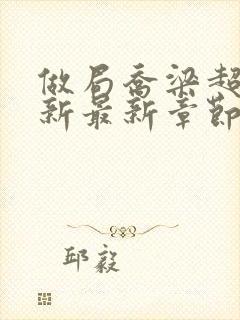 做局乔梁超
新最新章节
邱毅